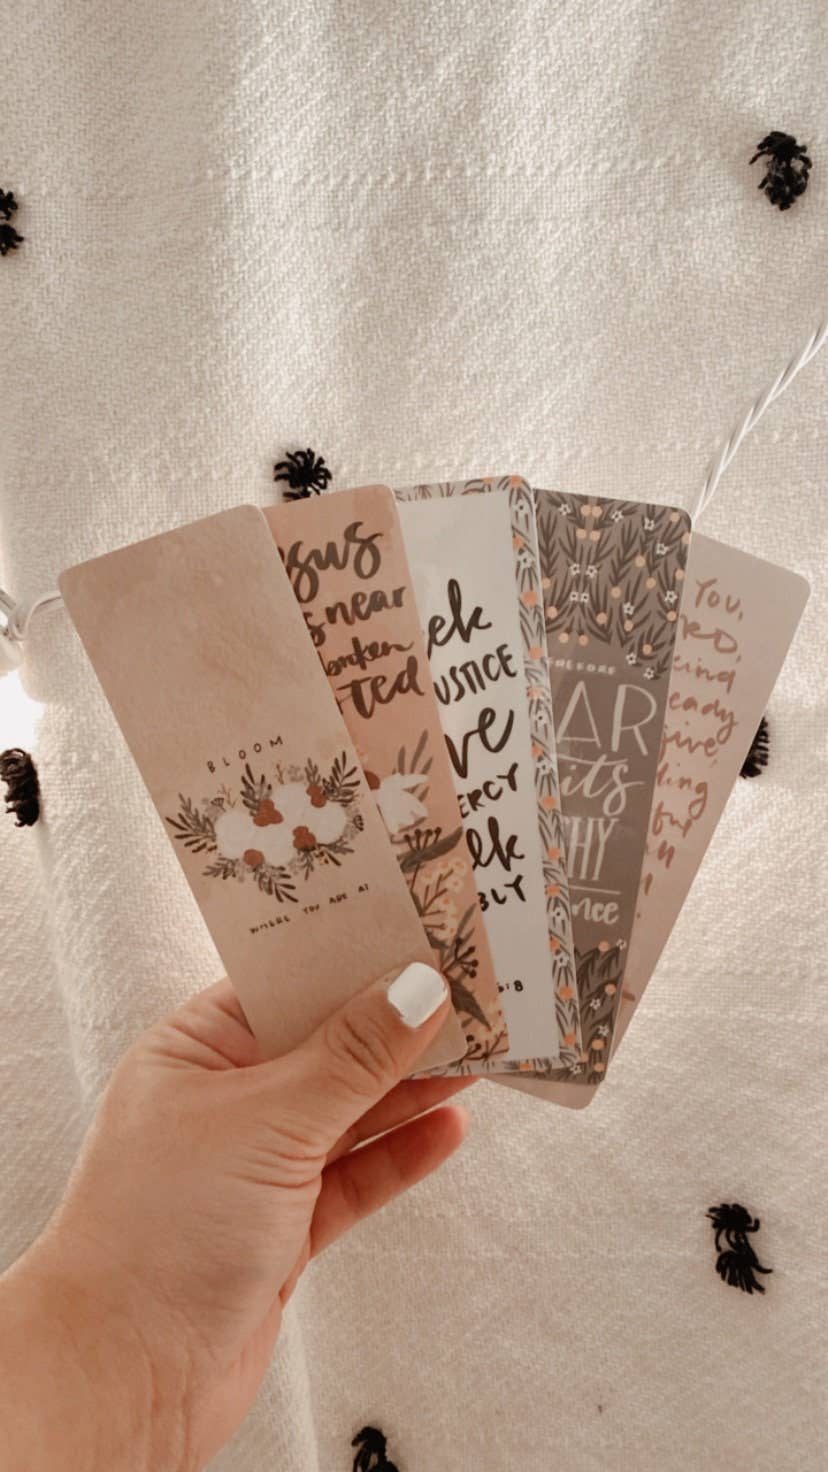 BLOOM
WHERE YOU ARE AT
esus
s near
broken
rted
eek
USTICE
ve
ERCY
lk
BLY
6:8
HEREFORE
AR
its
HY
nce
YOU,
RD,
eing
eady
give,
ding